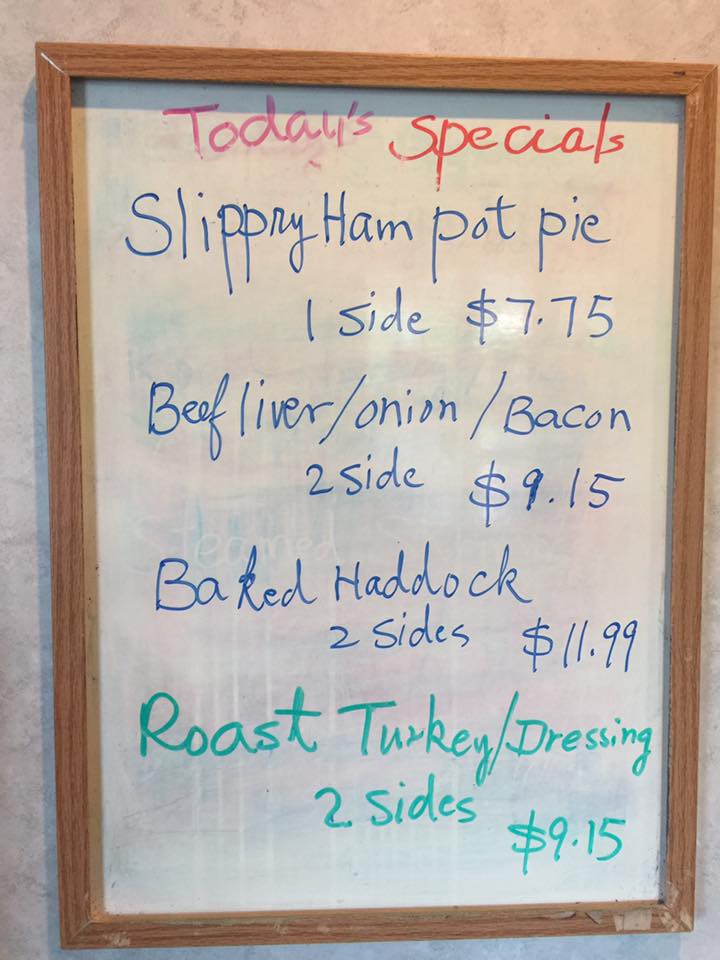 Today's Specials
Slippry Ham pot pie
1 side $7.75
Beef liver/onion/Bacon
2 side $9.15
Baked Haddock
2 sides $11.99
Roast Turkey/Dressing
2 sides
$9.15